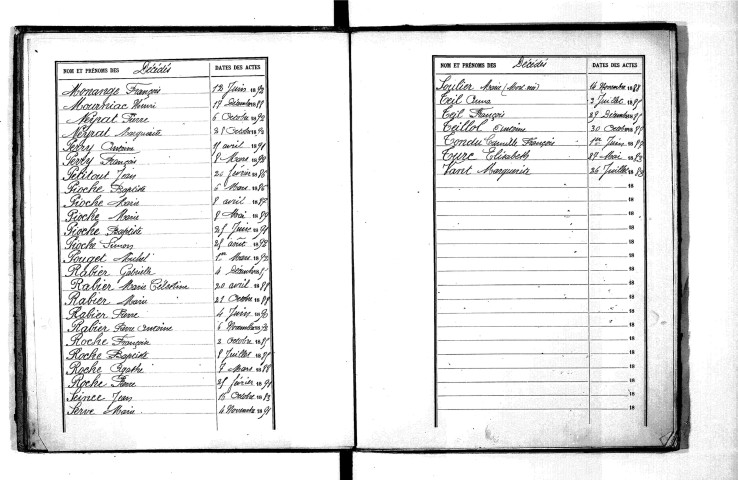 NOM ET PRÉNOMS DES Décédés DATES DES ACTES
Monange François 12 Juin 18
Mourniac Henri 17 Décembre 18
Neyrat Pierre 6 Octobre 1892
Neyrat Marguerite 28 Octobre 18
Perry Antoine 11 avril 1891
Perry François 8 Mars 18
Petitout Jean 20 février 1886
Pioche Baptiste 6 Mars 1886
Pioche Marie 8 avril 1887
Pioche Marie 8 Mai 1889
Pioche Baptiste 25 Juin 1891
Pioche Simon 25 août 1892
Pouget Michel 1er Mars 1892
Rabier Gabrielle 4 Décembre 18
Rabier Marie Célestine 20 avril 1888
Rabier Marie 21 Octobre 1888
Rabier Pierre 4 Juin 1890
Rabier Pierre Antoine 6 Novembre 18
Roche François 2 Octobre 1885
Roche Baptiste 8 Juillet 1885
Roche Agathe 7 Mars 1888
Roche Pierre 25 février 1891
Seince Jean 15 Octobre 1883
Serve Marie 4 Novembre 1891
NOM ET PRÉNOMS DES Décédés DATES DES ACTES
Soulier Marie (Mort né) 14 Novembre 1888
Teil Anna 2 Juillet 18
Teil François 29 Décembre 18
Teillol Antoine 30 Octobre 18
Tondu Camille François 1er Juin 18
Turc Elisabeth 29 Mai 1883
Vant Marguerite 26 Juillet 1883
18
18
18
18
18
18
18
18
18
18
18
18
18
18
18
18
18